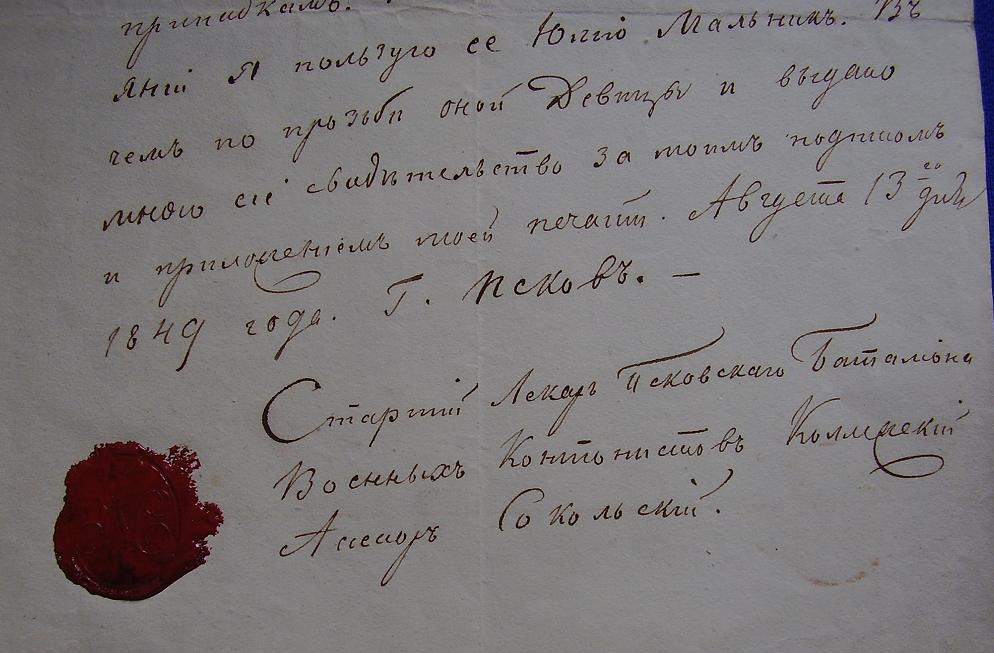 припадкамъ.
яніи я пользую ее Юлію Мальникъ. Въ
чемъ по прозьби оной Девицы и выдано
мною сіе свидѣтельство за моимъ подписомъ
и приложеніемъ моей печати. Августа 13го дня
1849 года. Г. Псковъ. —
Старшій Лекарь Псковскаго Баталіона
Военныхъ Контонистовъ Коллежскій
Ассесоръ Сокольскій.